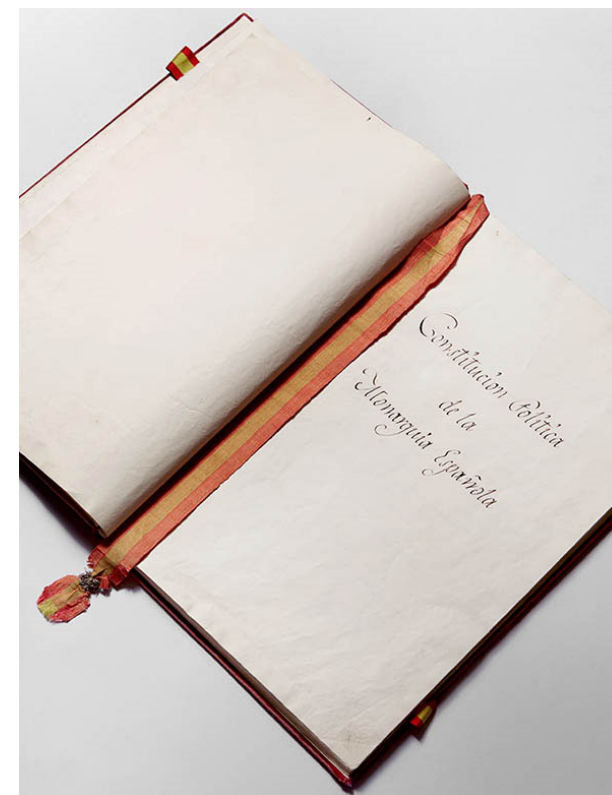 Constitución Política
de la
Monarquía Española